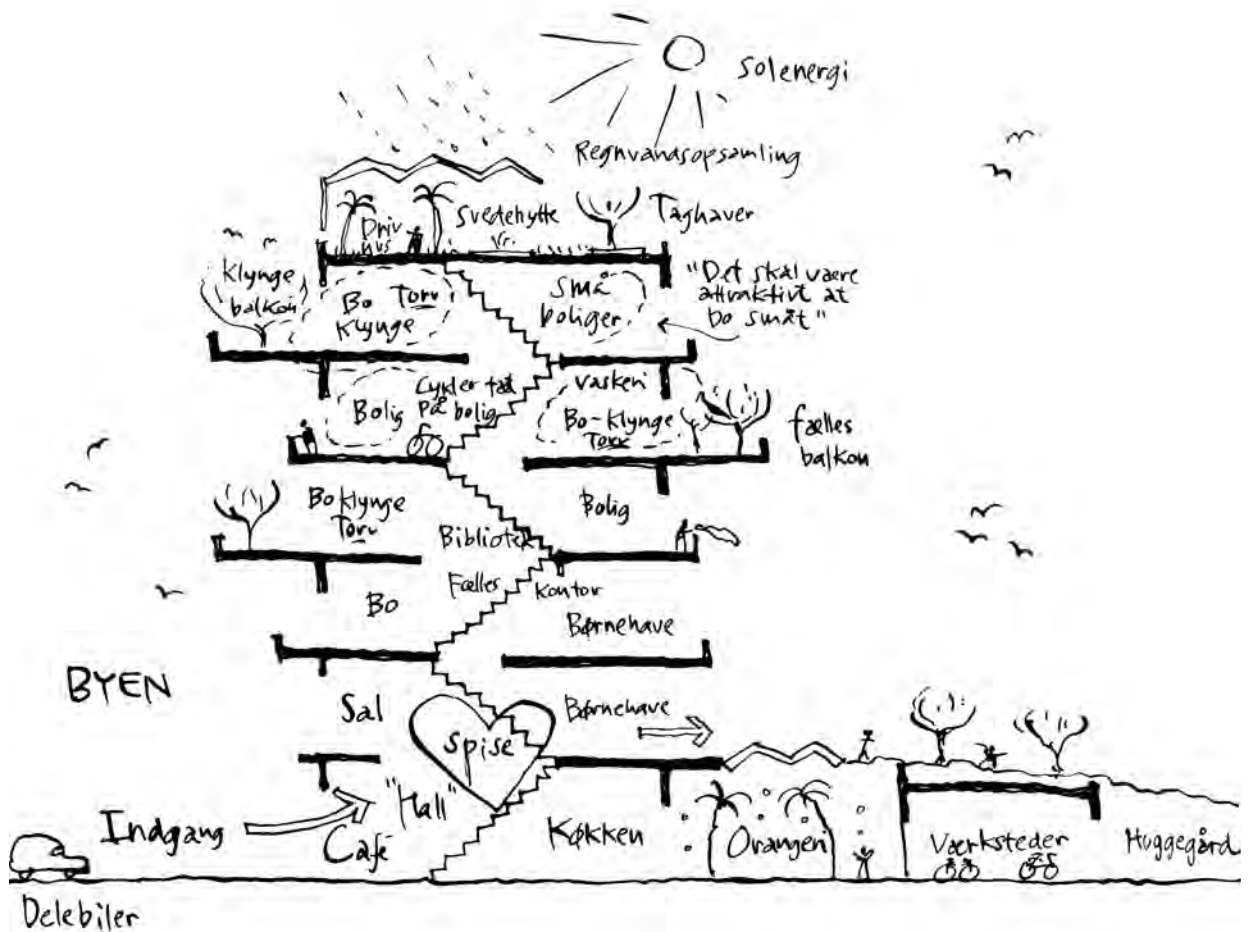 Solenergi
Regnvandsopsamling
Driv
hus
Svedehytte
Taghaver
Klynge
balkon
Bo Torv
Klynge
Små
boliger
"Det skal være
attraktivt at
bo småt"
Bolig
Cykler tæt
på bolig
Vaskeri
Bo-klynge
Torv
fælles
balkon
Bo klynge
Torv
Bibliotek
Bolig
Bo
Fælles
Kontor
Børnehave
BYEN
Sal
Spise
Børnehave
Indgang
"Hall"
Café
Køkken
Orangeri
Værksteder
Huggegård
Delebiler